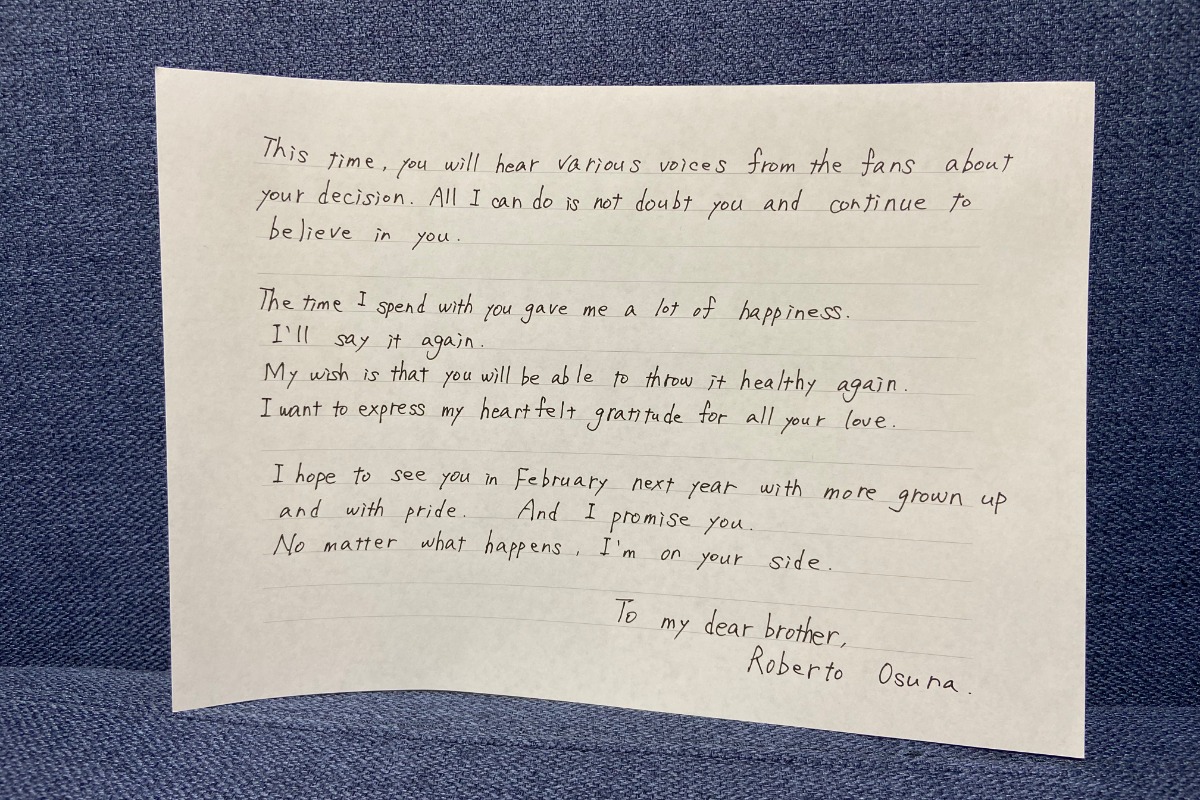 This time, you will hear various voices from the fans about
your decision. All I can do is not doubt you and continue to
believe in you.
The time I spend with you gave me a lot of happiness.
I'll say it again.
My wish is that you will be able to throw it healthy again.
I want to express my heartfelt gratitude for all your love.
I hope to see you in February next year with more grown up
and with pride. And I promise you.
No matter what happens, I'm on your side.
To my dear brother,
Roberto Osuna.